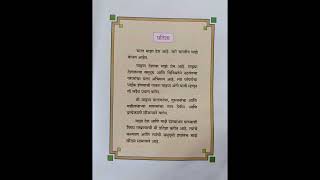 प्रतिज्ञा
भारत माझा देश आहे. सारे भारतीय माझे
बांधव आहेत.
माझ्या देशावर माझे प्रेम आहे. माझ्या
देशातल्या समृद्ध आणि विविधतेने नटलेल्या
परंपरांचा मला अभिमान आहे. त्या परंपरांचा
पाईक होण्याची पात्रता माझ्या अंगी यावी म्हणून
मी सदैव प्रयत्न करीन.
मी माझ्या पालकांचा, गुरुजनांचा आणि
वडीलधाऱ्या माणसांचा मान ठेवीन आणि
प्रत्येकाशी सौजन्याने वागेन.
माझा देश आणि माझे देशबांधव यांच्याशी
निष्ठा राखण्याची मी प्रतिज्ञा करीत आहे. त्यांचे
कल्याण आणि त्यांची समृद्धी ह्यांतच माझे
सौख्य सामावले आहे.